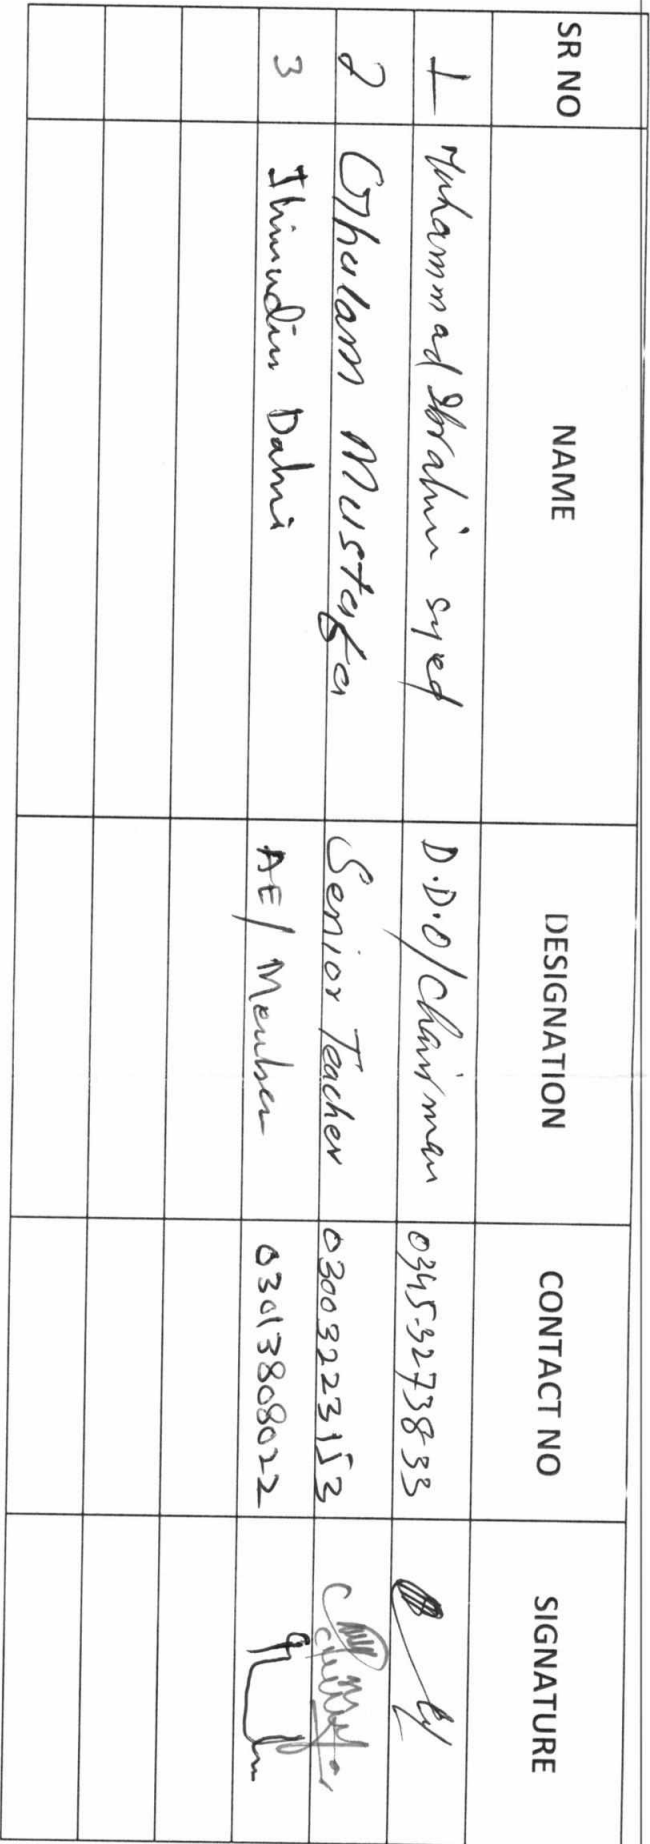 SR NO NAME DESIGNATION CONTACT NO SIGNATURE
1 Muhammad Ibrahim Syed D.D.O/Chairman 0345-3273833
2 Ghulam Mustafa Senior Teacher 03003223153
3 Ihimudin Dahri AE/Member 03013808022